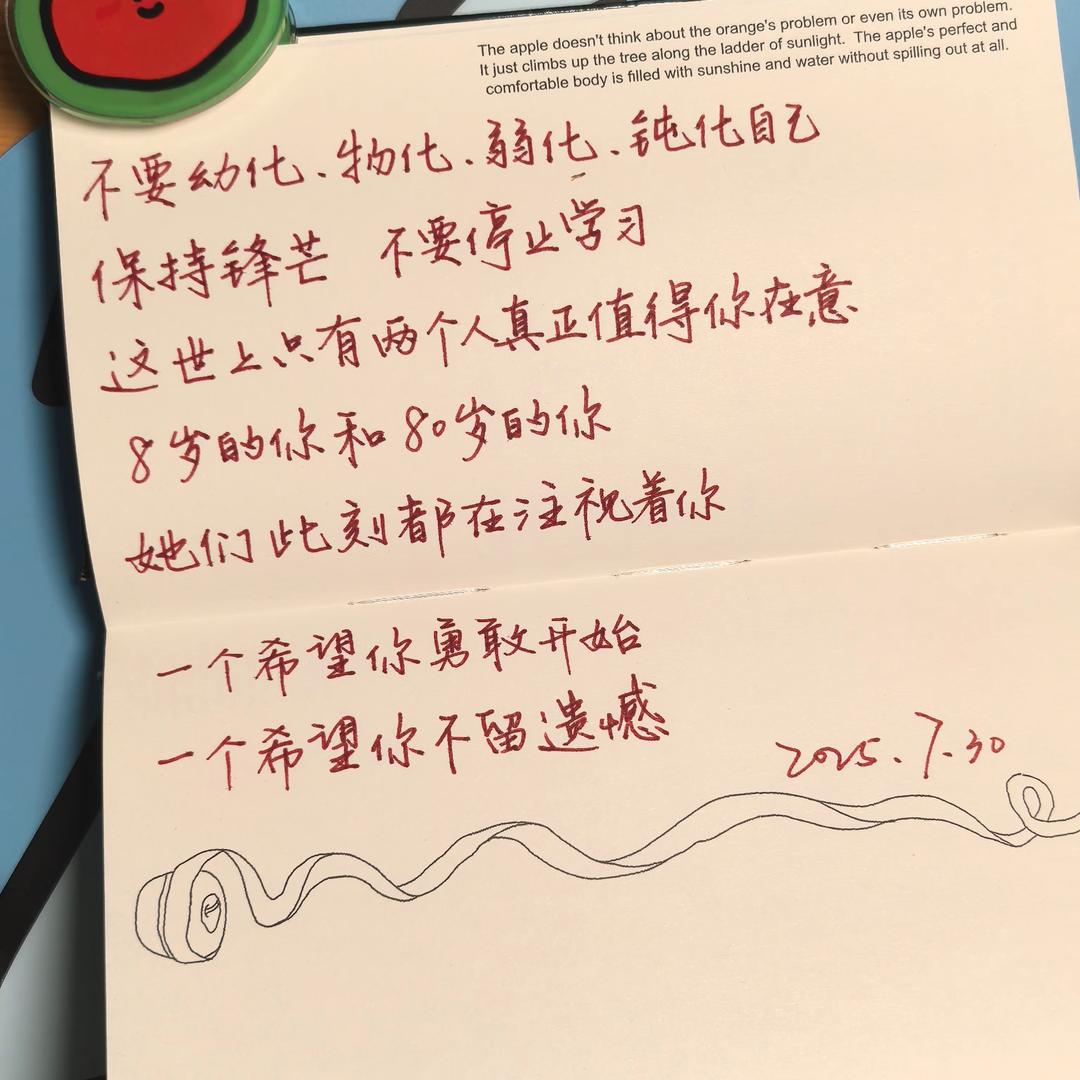 The apple doesn't think about the orange's problem or even its own problem.
It just climbs up the tree along the ladder of sunlight. The apple's perfect and
comfortable body is filled with sunshine and water without spilling out at all.
不要幼化、物化、弱化、钝化自己
保持锋芒 不要停止学习
这世上只有两个人真正值得你在意
8岁的你和80岁的你
她们此刻都在注视着你
一个希望你勇敢开始
一个希望你不留遗憾
2025.7.30